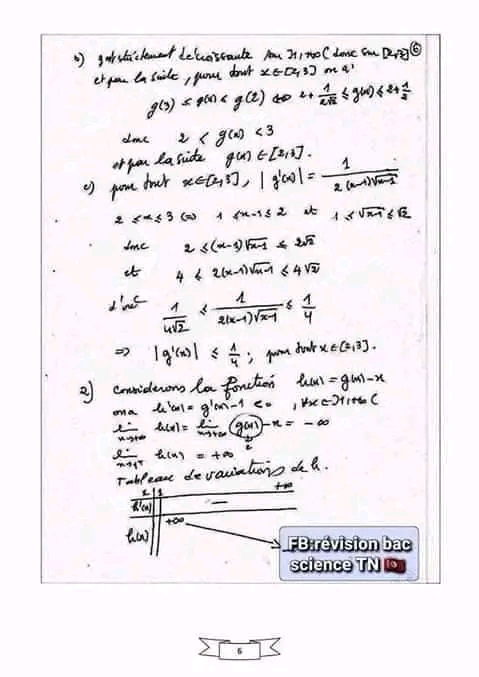 b) g est strictement décroissante sur ]1,+∞( donc sur [2,3] ⑥
et par la suite, pour tout x∈[2,3] on a :
g(3) ≤ g(x) ≤ g(2) ⇔ 2+1/(2√2) ≤ g(x) ≤ 2+1/2
donc 2 < g(x) < 3
et par la suite g(x) ∈ [2,3].
c) pour tout x∈[2,3], |g'(x)| = 1/(2(x-1)√x-1)
2 ≤ x ≤ 3 ⇔ 1 ≤ x-1 ≤ 2 et 1 ≤ √x-1 ≤ √2
donc 2 ≤ (x-1)√x-1 ≤ 2√2
et 4 ≤ 2(x-1)√x-1 ≤ 4√2
d'où 1/(4√2) ≤ 1/(2(x-1)√x-1) ≤ 1/4
⇒ |g'(x)| ≤ 1/4 ; pour tout x∈[2,3].
2) considérons la fonction h(x) = g(x)-x
on a h'(x) = g'(x)-1 < 0, ∀x∈]1,+∞(
lim x→+∞ h(x) = lim x→+∞ g(x) - x = -∞
2
lim x→1+ h(x) = +∞
Tableau de variations de h.
x 1 +∞
h'(x) −
+∞
h(x)
FB:révision bac
science TN
6